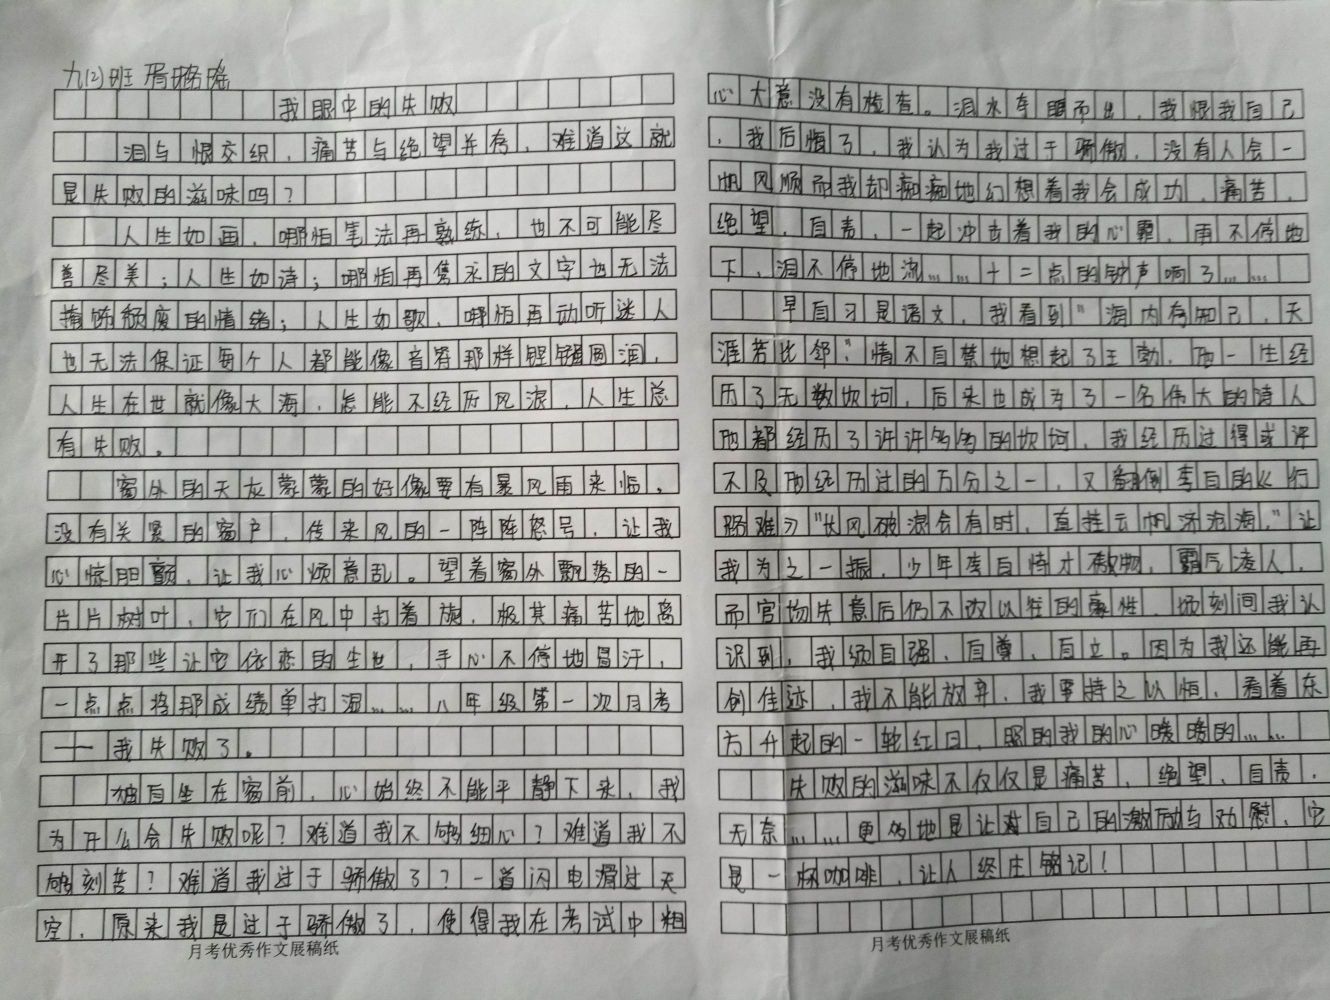 九(2)班
我眼中的失败
泪与恨交织，痛苦与绝望并存，难道这就
是失败的滋味吗？
人生如画，哪怕笔法再熟练，也不可能尽
善尽美；人生如诗；哪怕再隽永的文字也无法
掩饰颓废的情绪；人生如歌，哪怕再动听迷人
也无法保证每个人都能像音符那样铿锵圆润，
人生在世就像大海，怎能不经历风浪，人生总
有失败。
窗外的天灰蒙蒙的好像要有暴风雨来临，
没有关紧的窗户，传来风的一阵阵怒号，让我
心惊胆颤，让我心烦意乱。望着窗外飘落的一
片片树叶，它们在风中打着旋，极其痛苦地离
开了那些让它依恋的生世，手心不停地冒汗，
一点点将那成绩单打湿……八年级第一次月考
——我失败了。
独自坐在窗前，心始终不能平静下来，我
为什么会失败呢？难道我不够细心？难道我不
够刻苦？难道我过于骄傲了？一道闪电滑过天
空，原来我是过于骄傲了，使得我在考试中粗
月考优秀作文展稿纸
心大意没有检查。泪水夺眶而出，我恨我自己
，我后悔了，我认为我过于骄傲，没有人会一
帆风顺而我却痴痴地幻想着我会成功，痛苦，
绝望，自责，一起冲击着我的心霸，雨不停地
下，泪不停地流……十二点的钟声响了……
早自习是语文，我看到“海内存知己，天
涯若比邻”情不自禁地想起了王勃，他一生经
历了无数坎坷，后来也成为了一名伟大的诗人
他都经历了许许多多的坎坷，我经历过得或许
不及他经历过的万分之一，又翻倒李白的《行
路难》“长风破浪会有时，直挂云帆济沧海，”让
我为之一振，少年李白恃才傲物，霸气凌人，
而官场失意后仍不改以往的秉性 顷刻间我认
识到，我须自强，自尊，自立。因为我还能再
创佳迹，我不能放弃，我要持之以恒，看着东
方升起的一轮红日，照的我的心暖暖的……
失败的滋味不仅仅是痛苦，绝望，自责，
无奈……更多地是让对自己的激励与劝慰，它
是一杯咖啡，让人终庄铭记！
月考优秀作文展稿纸